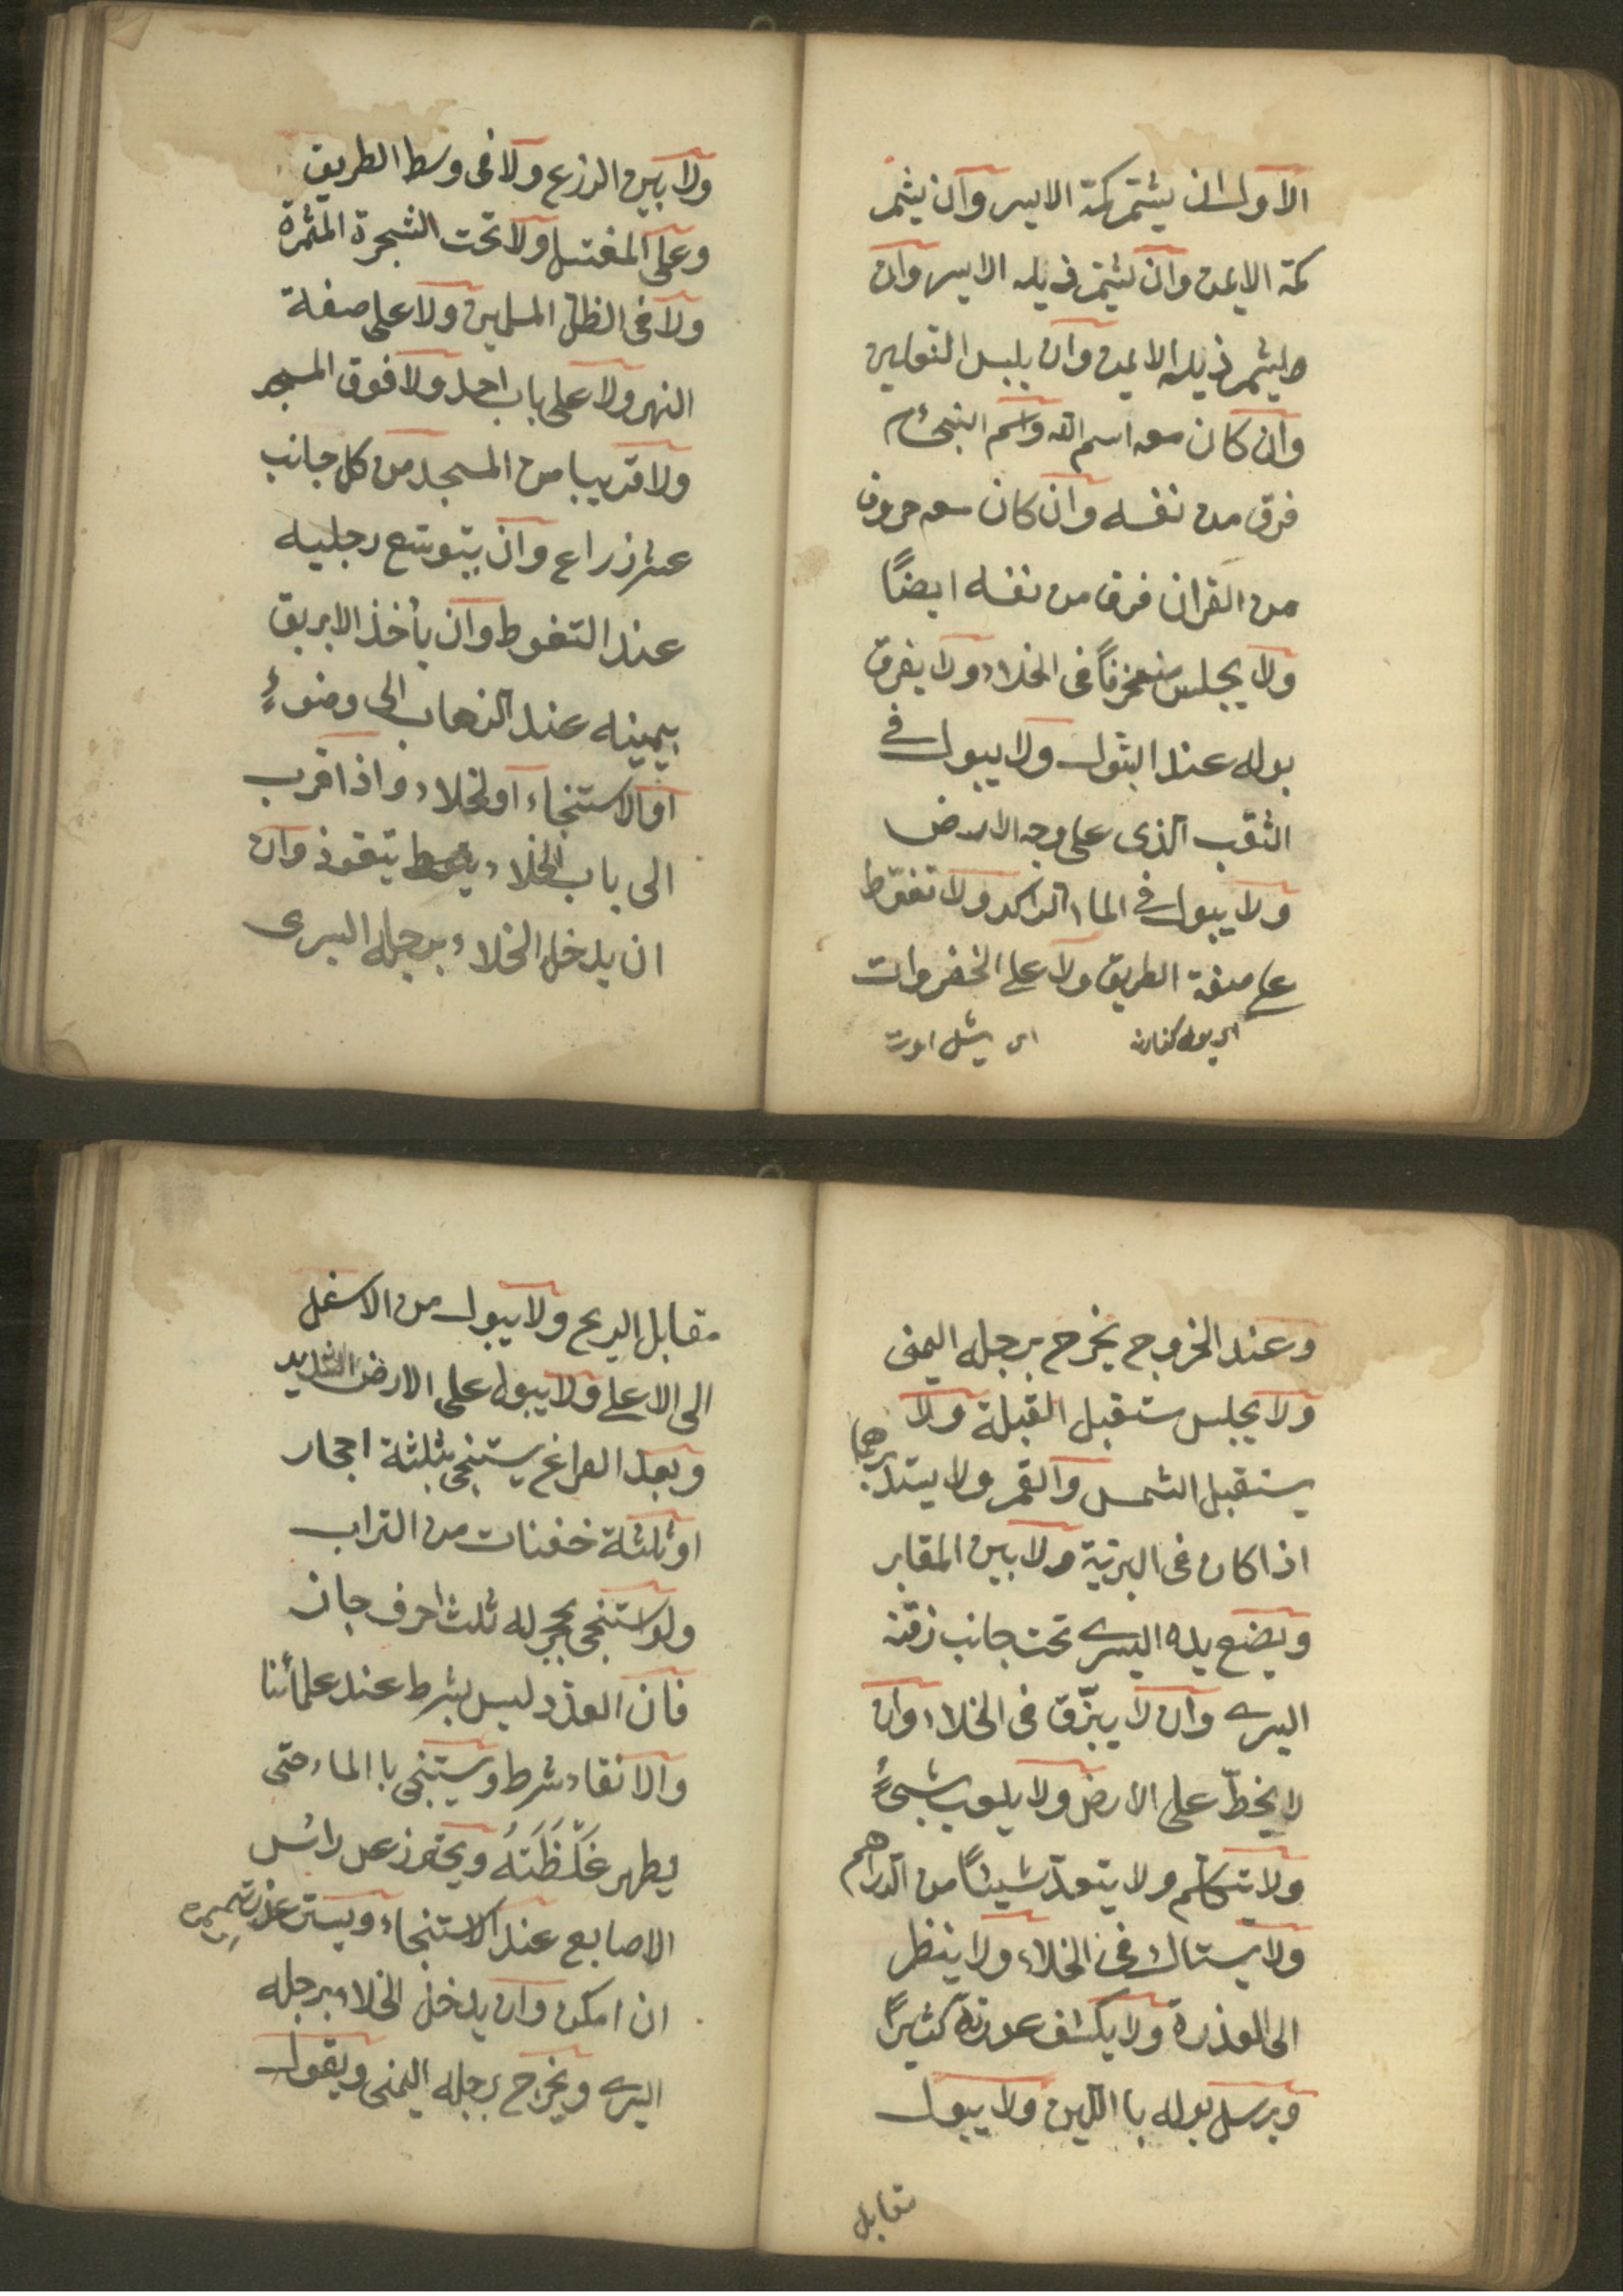 الاول ان يشتمر كمّة الايسر وآن يشمر
كمّة الايمن وآن يشتمّر ذيله الايسر وآن
يشمر ذيله الايمن وآن يلبس النعلين
وآن كان معه اسم الله واسم النبى ءم
فرق من نفسه وآن كان معه حروف
من القران فرق من نفسه ايضًا
ولا يجلس منحرفاً فى الخلاء ولا يفرق
بوله عند البول ولا يبول فى
الثقب الذى على وجه الارض
ولا يبول فى الماء الراكد ولا تغوّط
على صفة الطريق ولا على الخضروات
ولا بين الزرع ولا فى وسط الطريق
وعلى المغتسل ولا تحت الشجرة المثمرة
ولا فى الظل المسلمين ولا على صفة
النهر ولا على باب احد ولا فوق المسجد
ولا قريبا من المسجد من كل جانب
عشر زراع وآن يتوسّع رجليه
عند التغوط وآن يأخذ الابريق
بيمينه عند الذهاب الى وضوءٍ
اوالاستنجاء اولخلاء واذا قرب
الى باب الخلاء يتعوذ وآن
ان يدخل الخلاء برجله اليسرى
وعند الخروج يخرج برجله اليمنى
ولا يجلس ستقبل القبلة ولا
يستقبل الشمس والقمر ولا يستدبرهما
اذا كان فى البرّيّة ولا بين المقابر
ويضع يده اليسرے تحت جانب ذقنه
اليسرے وان لا يبزّق فى الخلاء وان
لا يخطّ على الارض ولا يلعب بشىءٍ
ولا يتكلم ولا يتعدّ شيئاً من الدراهم
ولا يستاك فى الخلاء ولا ينظر
الى العذرة ولا يكشف عورته كثيرًا
ويرسل بوله با اللّين ولا يبول
مقابل
مقابل الريح ولا يبول من الاسفل
الى الاعلى ولا يبول على الارض الشديد
وبعد الفراغ يستنجى بثلثة احجار
او ثلثة حفنات من التراب
ولو استنجى بحجر له ثلث احرف جاز
فان العدد ليس بشرط عند علمائنا
والانقاء شرط ويستنجى با الماء حتى
يطهر غَلّظَتَهُ ويحترز عن رائس
الاصابع عند الاستنجاء ويستر عورته
ان امكن وان يدخل الخلاء برجله
اليسرے ويخرج برجله اليمنى ويقول